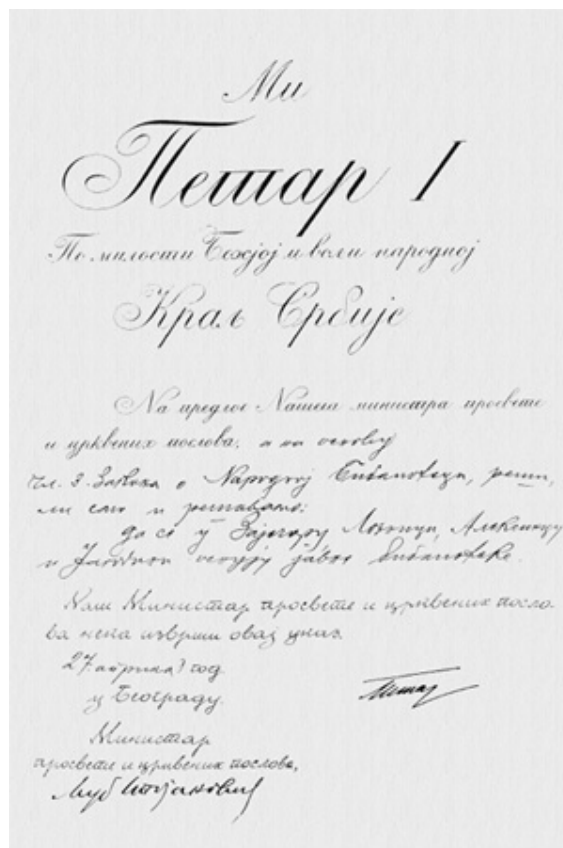 Ми
Петар I
По милости Божјој и вољи народној
Краљ Србије
На предлог Нашега министра просвете
и црквених послова, а на основу
чл. 3. Закона о Народној Библиотеци, реши,
ли смо и решавамо:
да се у Зајечару Лозници, Алексинцу
и Јагодини оснују јавне библиотеке.
Наш Министар просвете и црквених посло-
ва нека изврши овај указ.
27. априла год.
у Београду.
Министар
просвете и црквених послова,
Љуб Стојановић
Петар